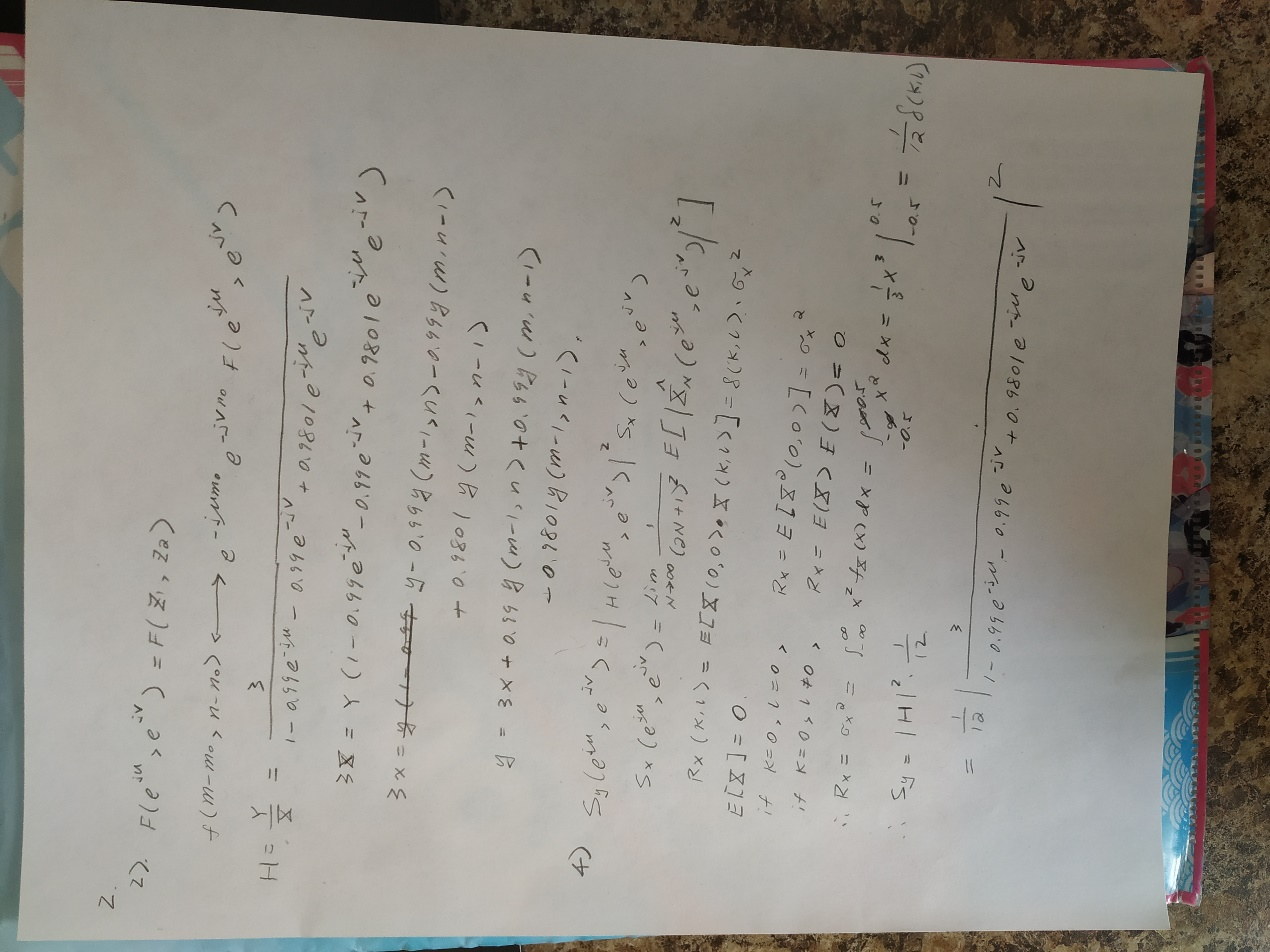 2.
2). F(e^{jμ}, e^{jν}) = F(Z₁, Z₂)
f(m-m₀, n-n₀) ⟷ e^{-jμm₀} e^{-jνn₀} F(e^{jμ}, e^{jν})
H = Y/X = 3 / (1 - 0.99e^{-jμ} - 0.99e^{-jν} + 0.9801e^{-jμ} e^{-jν})
3X = Y(1 - 0.99e^{-jμ} - 0.99e^{-jν} + 0.9801e^{-jμ} e^{-jν})
3x = y - 0.99y(m-1, n) - 0.99y(m, n-1)
+ 0.9801 y(m-1, n-1)
y = 3x + 0.99y(m-1, n) + 0.99y(m, n-1)
- 0.9801y(m-1, n-1).
4) Sy(e^{jμ}, e^{jν}) = |H(e^{jμ}, e^{jν})|² Sx(e^{jμ}, e^{jν})
Sx(e^{jμ}, e^{jν}) = lim_{N→∞} 1/(2N+1)² E[|X̂_N(e^{jμ}, e^{jν})|²]
Rx(k, l) = E[X(0,0)·X(k,l)] = δ(k,l)·σx²
E[X] = 0.
if k=0, l=0, Rx = E[X²(0,0)] = σx²
if k=0, l≠0, Rx = E(X) E(X) = 0
∴ Rx = σx² = ∫_{-∞}^{∞} x² fX(x) dx = ∫_{-0.5}^{0.5} x² dx = 1/3 x³ |_{-0.5}^{0.5} = 1/12 δ(k,l)
∴ Sy = |H|² · 1/12
= 1/12 | 3 / (1 - 0.99e^{-jμ} - 0.99e^{-jν} + 0.9801e^{-jμ} e^{-jν}) |²